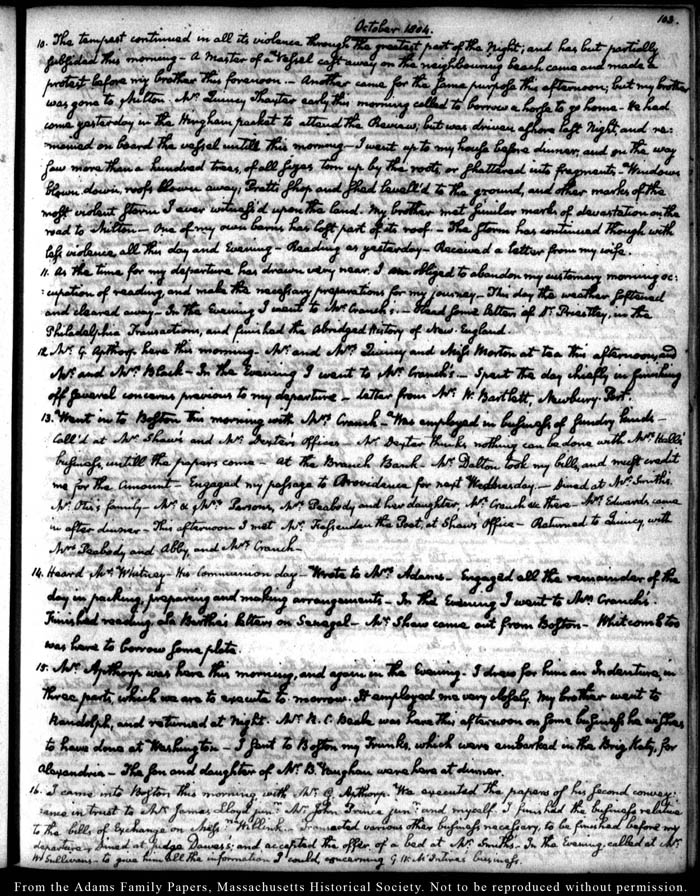 103.
October 1804.
10. The tempest continued in all its violence through the greatest part of the Night; and has but partially
subsided this morning — A Master of a Vessel cast away on the neighbouring beach came and made a
protest before my brother this forenoon — Another came for the same purpose this afternoon; but my brother
was gone to Milton. Mr. Quincy Thaxter early this morning called to borrow a horse to go home — He had
come yesterday in the Hingham packet to attend the Review, but was driven ashore last Night, and re-
mained on board the vessel untill this morning — I went up to my house before dinner, and on the way
saw more than a hundred trees, of all sizes torn up by the roots, or shattered into fragments — Windows
blown down, roofs blown away; Pratt's Shop and Shed levell'd to the ground, and other marks of the
most violent storm I ever witness'd upon the land. My brother met similar marks of devastation on the
road to Milton — One of my own barns has lost part of its roof — The storm has continued though with
less violence, all this day and Evening — Reading as yesterday — Received a letter from my wife.
11. As the time for my departure has drawn very near, I am obliged to abandon my customary morning oc-
:cupation of reading, and make the necessary preparations for my journey — This day the weather softened
and cleared away — In the Evening I went to Mr. Cranch's. — Read some letters of Dr. Priestley, in the
Philadelphia Transactions, and finished the Abridged History of New-England.
12. Mr. G. Apthorp here this morning — Mr. and Mrs. Quincy and Miss Morton at tea this afternoon, and
Mr. and Mrs. Black — In the Evening I went to Mr. Cranch's — Spent the day chiefly in finishing
off several concerns previous to my departure — Letter from Mr. W. Bartlett, Newbury-Port.
13. Went in to Boston this morning with Mrs. Cranch — Was employed in business of sundry kinds —
Call'd at Mr. Shaw's and Mr. Dexter's Offices — Mr. Dexter thinks nothing can be done with Mrs. Hall's
business, untill the papers come — At the Branch Bank — Mr. Dalton took my bills, and must credit
me for the amount — Engaged my passage to Providence for next Wednesday. — Dined at Mr. Smith's.
Mr. Otis's family — Mr. & Mrs. Parsons, Mrs. Peabody and her daughter, Mrs. Cranch &c there — Mrs. Edwards came
in after dinner — This afternoon I met Mr. Fessenden the Poet, at Shaw's Office — Returned to Quincy, with
Mrs. Peabody and Abby, and Mrs. Cranch —
14. Heard Mr. Whitney — His Communion day — Wrote to Mrs. Adams. Engaged all the remainder of the
day in packing, preparing and making arrangements — In the Evening I went to Mr. Cranch's.
Finished reading La Barthe's letters on Senegal — Mr. Shaw came out from Boston — Whitcomb too
was here to borrow some plate.
15. Mr. Apthorp was here this morning, and again in the Evening. I drew for him an Indenture, in
three parts, which we are to execute to-morrow. It employed me very closely. My brother went to
Randolph, and returned at Night. Mr. N. C. Beale was here this afternoon on some business he wishes
to have done at Washington — I sent to Boston my Trunks, which were embarked in the Brig Katy, for
Alexandria — The son and daughter of Mr. B. Vaughan were here at dinner.
16. I came into Boston this morning with Mr. G. Apthorp. We executed the papers of his second convey-
:ance in trust to Mr. James Lloyd junr. Mr. John Prince junr. and myself. I finished the business relative
to the bills of Exchange on Messrs. Willink. Transacted various other business necessary, to be finished before my
departure, dined at Judge Dawes's; and accepted the offer of a bed at Mr. Smith's. In the Evening, called at Mr.
Wm. Sullivan's — to give him all the information I could, concerning G. W. McIntire's business.
From the Adams Family Papers, Massachusetts Historical Society. Not to be reproduced without permission.